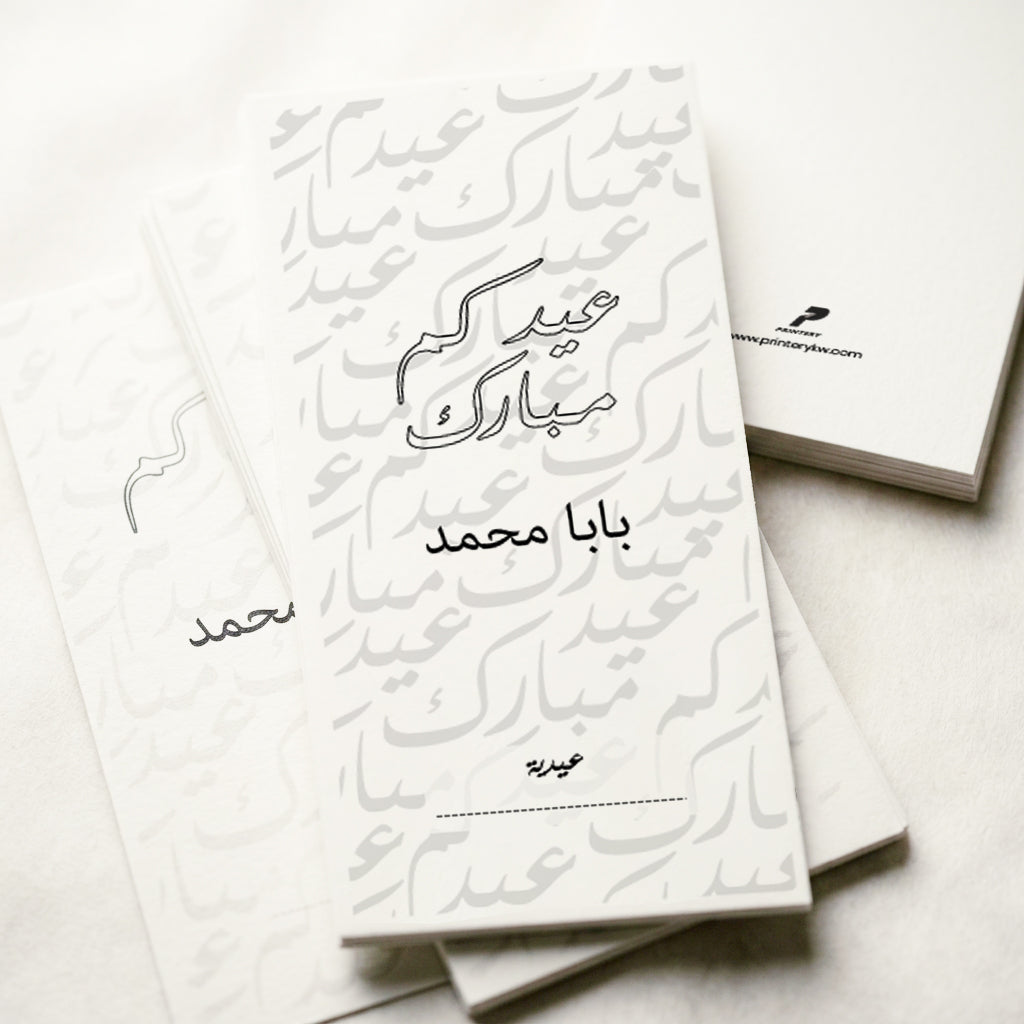 عيدكم
مبارك
بابا محمد
عيدية
محمد
PRINTERY
www.printerykw.com